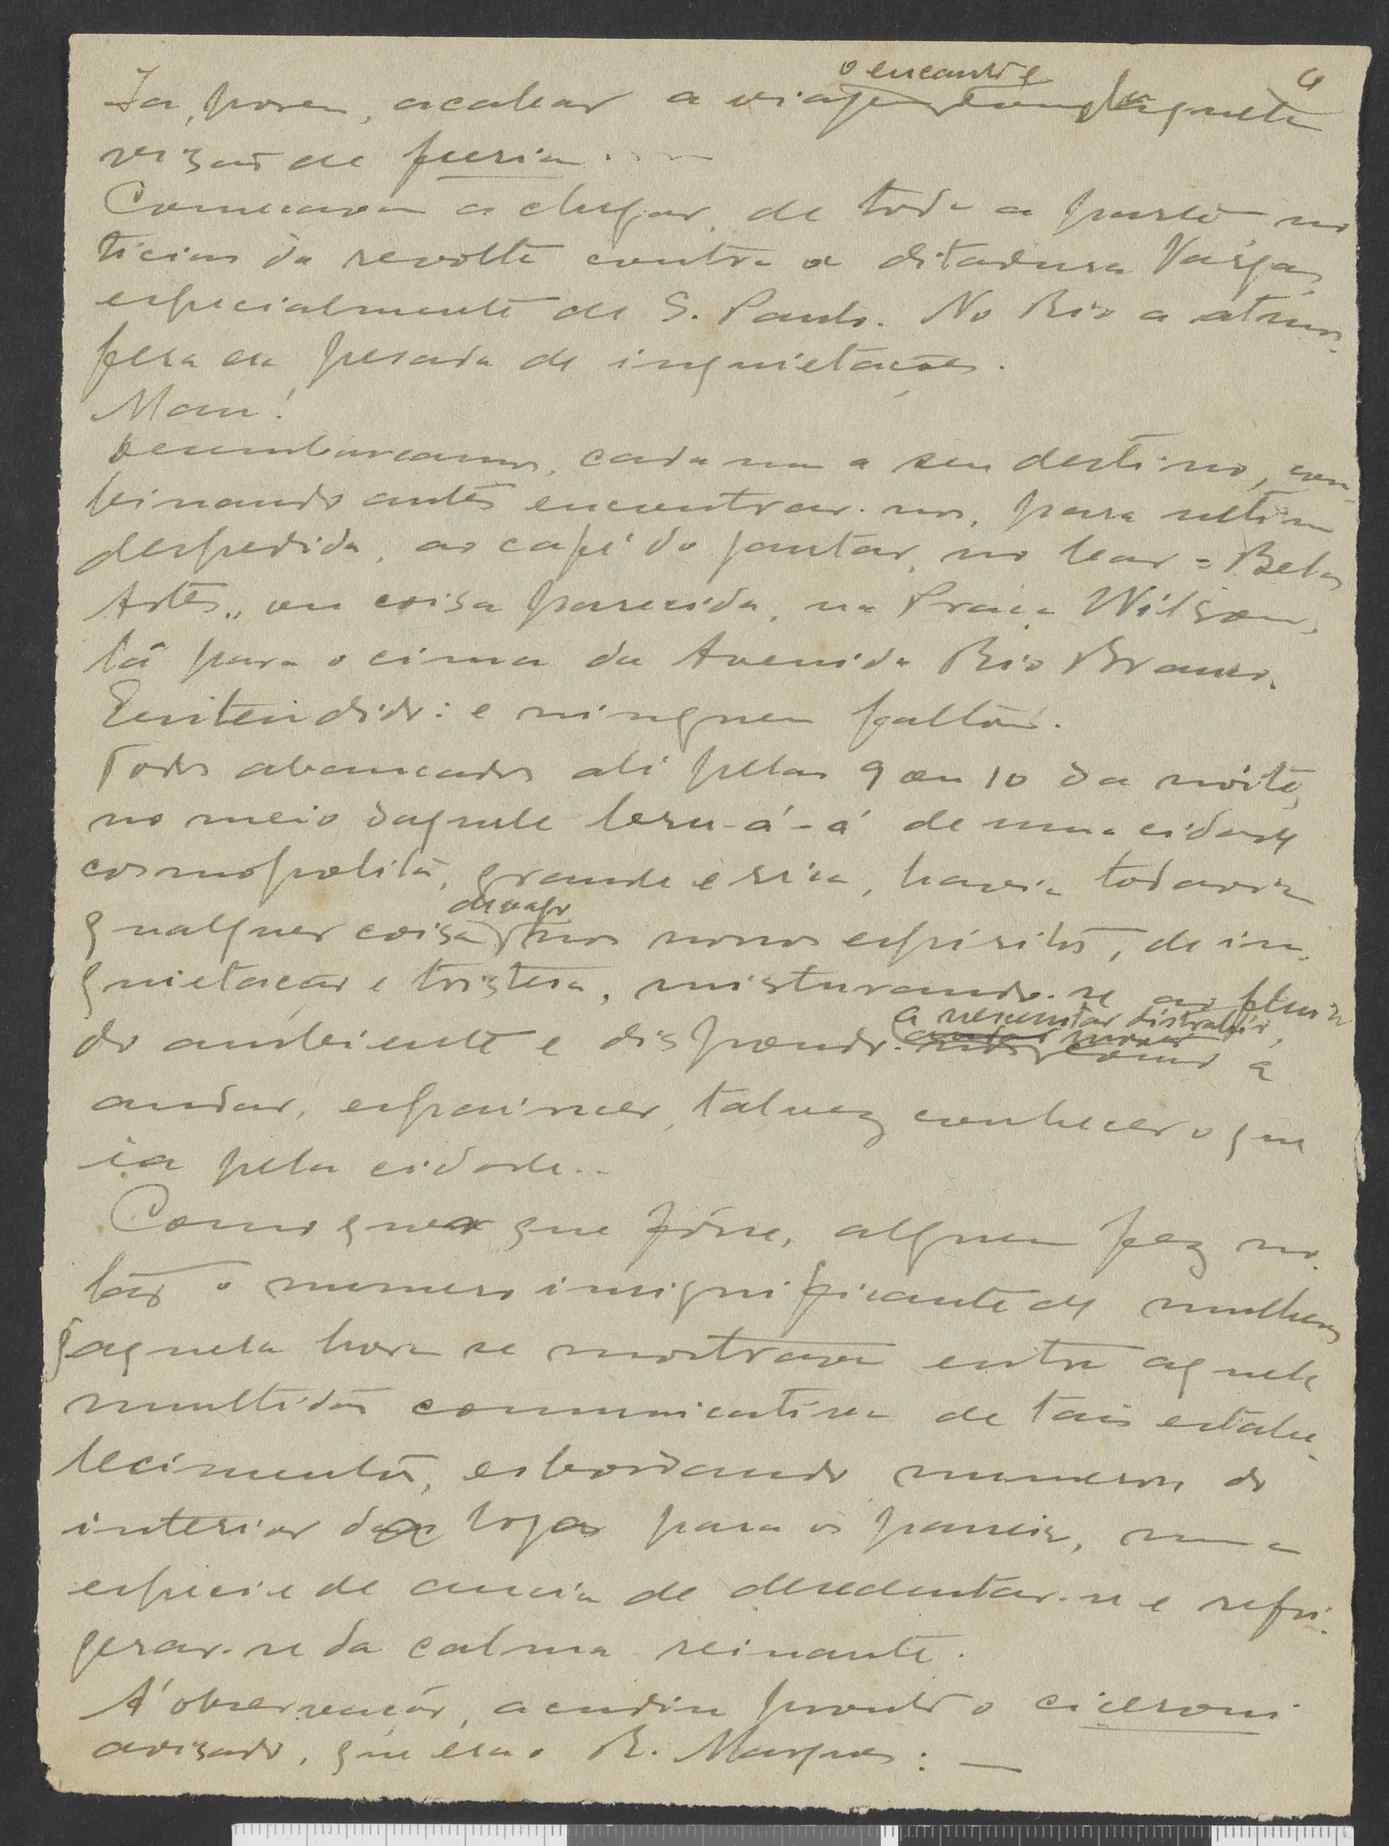 6
o encanto e
Ia, porem, acabar a viagem daquela
visão de feeria.....
Começavam a chegar, de toda a parte no
ticias da revolta contra a ditadura Vargas
especialmente de S. Paulo. No Rio a atmos-
fera era pesada de inquietações.
Mau!
Desembarcamos, cada um a seu destino, com-
binando antes encontrar-nos, para ultima
despedida, ao café do jantar, no bar "Belas
Artes", ou coisa parecida, na Praça Wilson,
lá para o cimo da Avenida Rio Branco.
Entendido: e ninguem faltou.
Todos abancados ali pelas 9 ou 10 da noite,
no meio daquele bru-á-á de uma cidade
cosmopolita, grande e rica, havia todavia
de vago
qualquer coisa nos nossos espiritos, de in-
quietação e tristeza, misturando-se ao fluido
a recrutar distrahir,
do ambiente e dispondo-nos a
andar, espairecer, talvez conhecer o que
ia pela cidade..
Como quer que fôsse, alguem fez no-
tar o numero insignificante de mulheres
q aquela hora se mostrava entre aquela
multidão comunicativa de tais estabe-
lecimentos, esbordando numerosa do
interior das lojas para os passeios, numa
especie de ancia de desedentar-se e refri-
gerar-se da calma reinante.
A' observação, acudiu pronto o ciceroni
avisado, que era o R. Marques: —